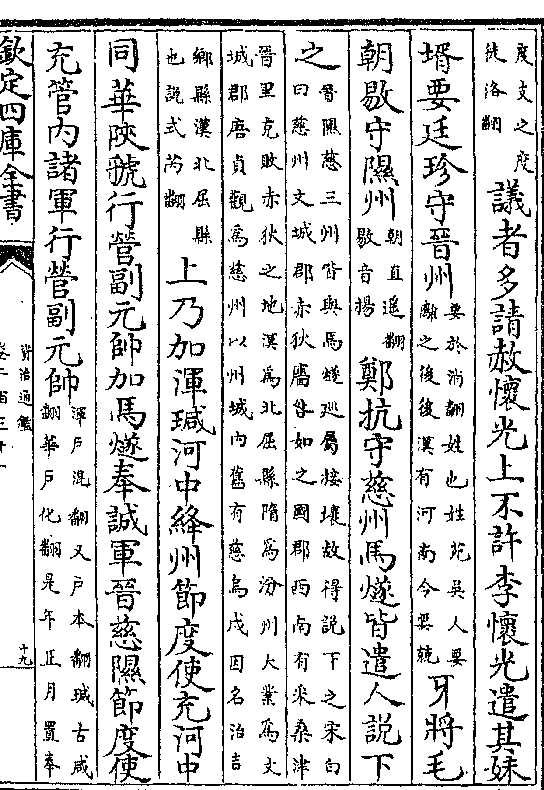 度支之度
徒洛翻
議者多請赦懷光上不許李懷光遣其妹
壻要廷珍守晉州
要於消翻姓也姓苑吳人要
離之後後漢有河南令要兢
牙將毛
朝敭守隰州
朝直遥翻
敭音揚
鄭抗守慈州馬燧皆遣人説下
之
晉隰慈三州皆與馬燧廵屬接壤故得説下之宋白
曰慈州文城郡赤狄廧咎如之國郡西南有采桑津
晉里克敗赤狄之地漢爲北屈縣隋爲汾州大業爲文
城郡唐貞觀爲慈州以州城内舊有慈烏戍因名治吉
鄉縣漢北屈縣
也説式芮翻
上乃加渾瑊河中絳州節度使充河中
同華陜虢行營副元帥加馬燧奉誠軍晉慈隰節度使
充管内諸軍行營副元帥
渾戶混翻又戶本翻瑊古咸
翻華戶化翻是年正月置奉
欽定四庫全書
資治通鑑
卷二百三十一
十九